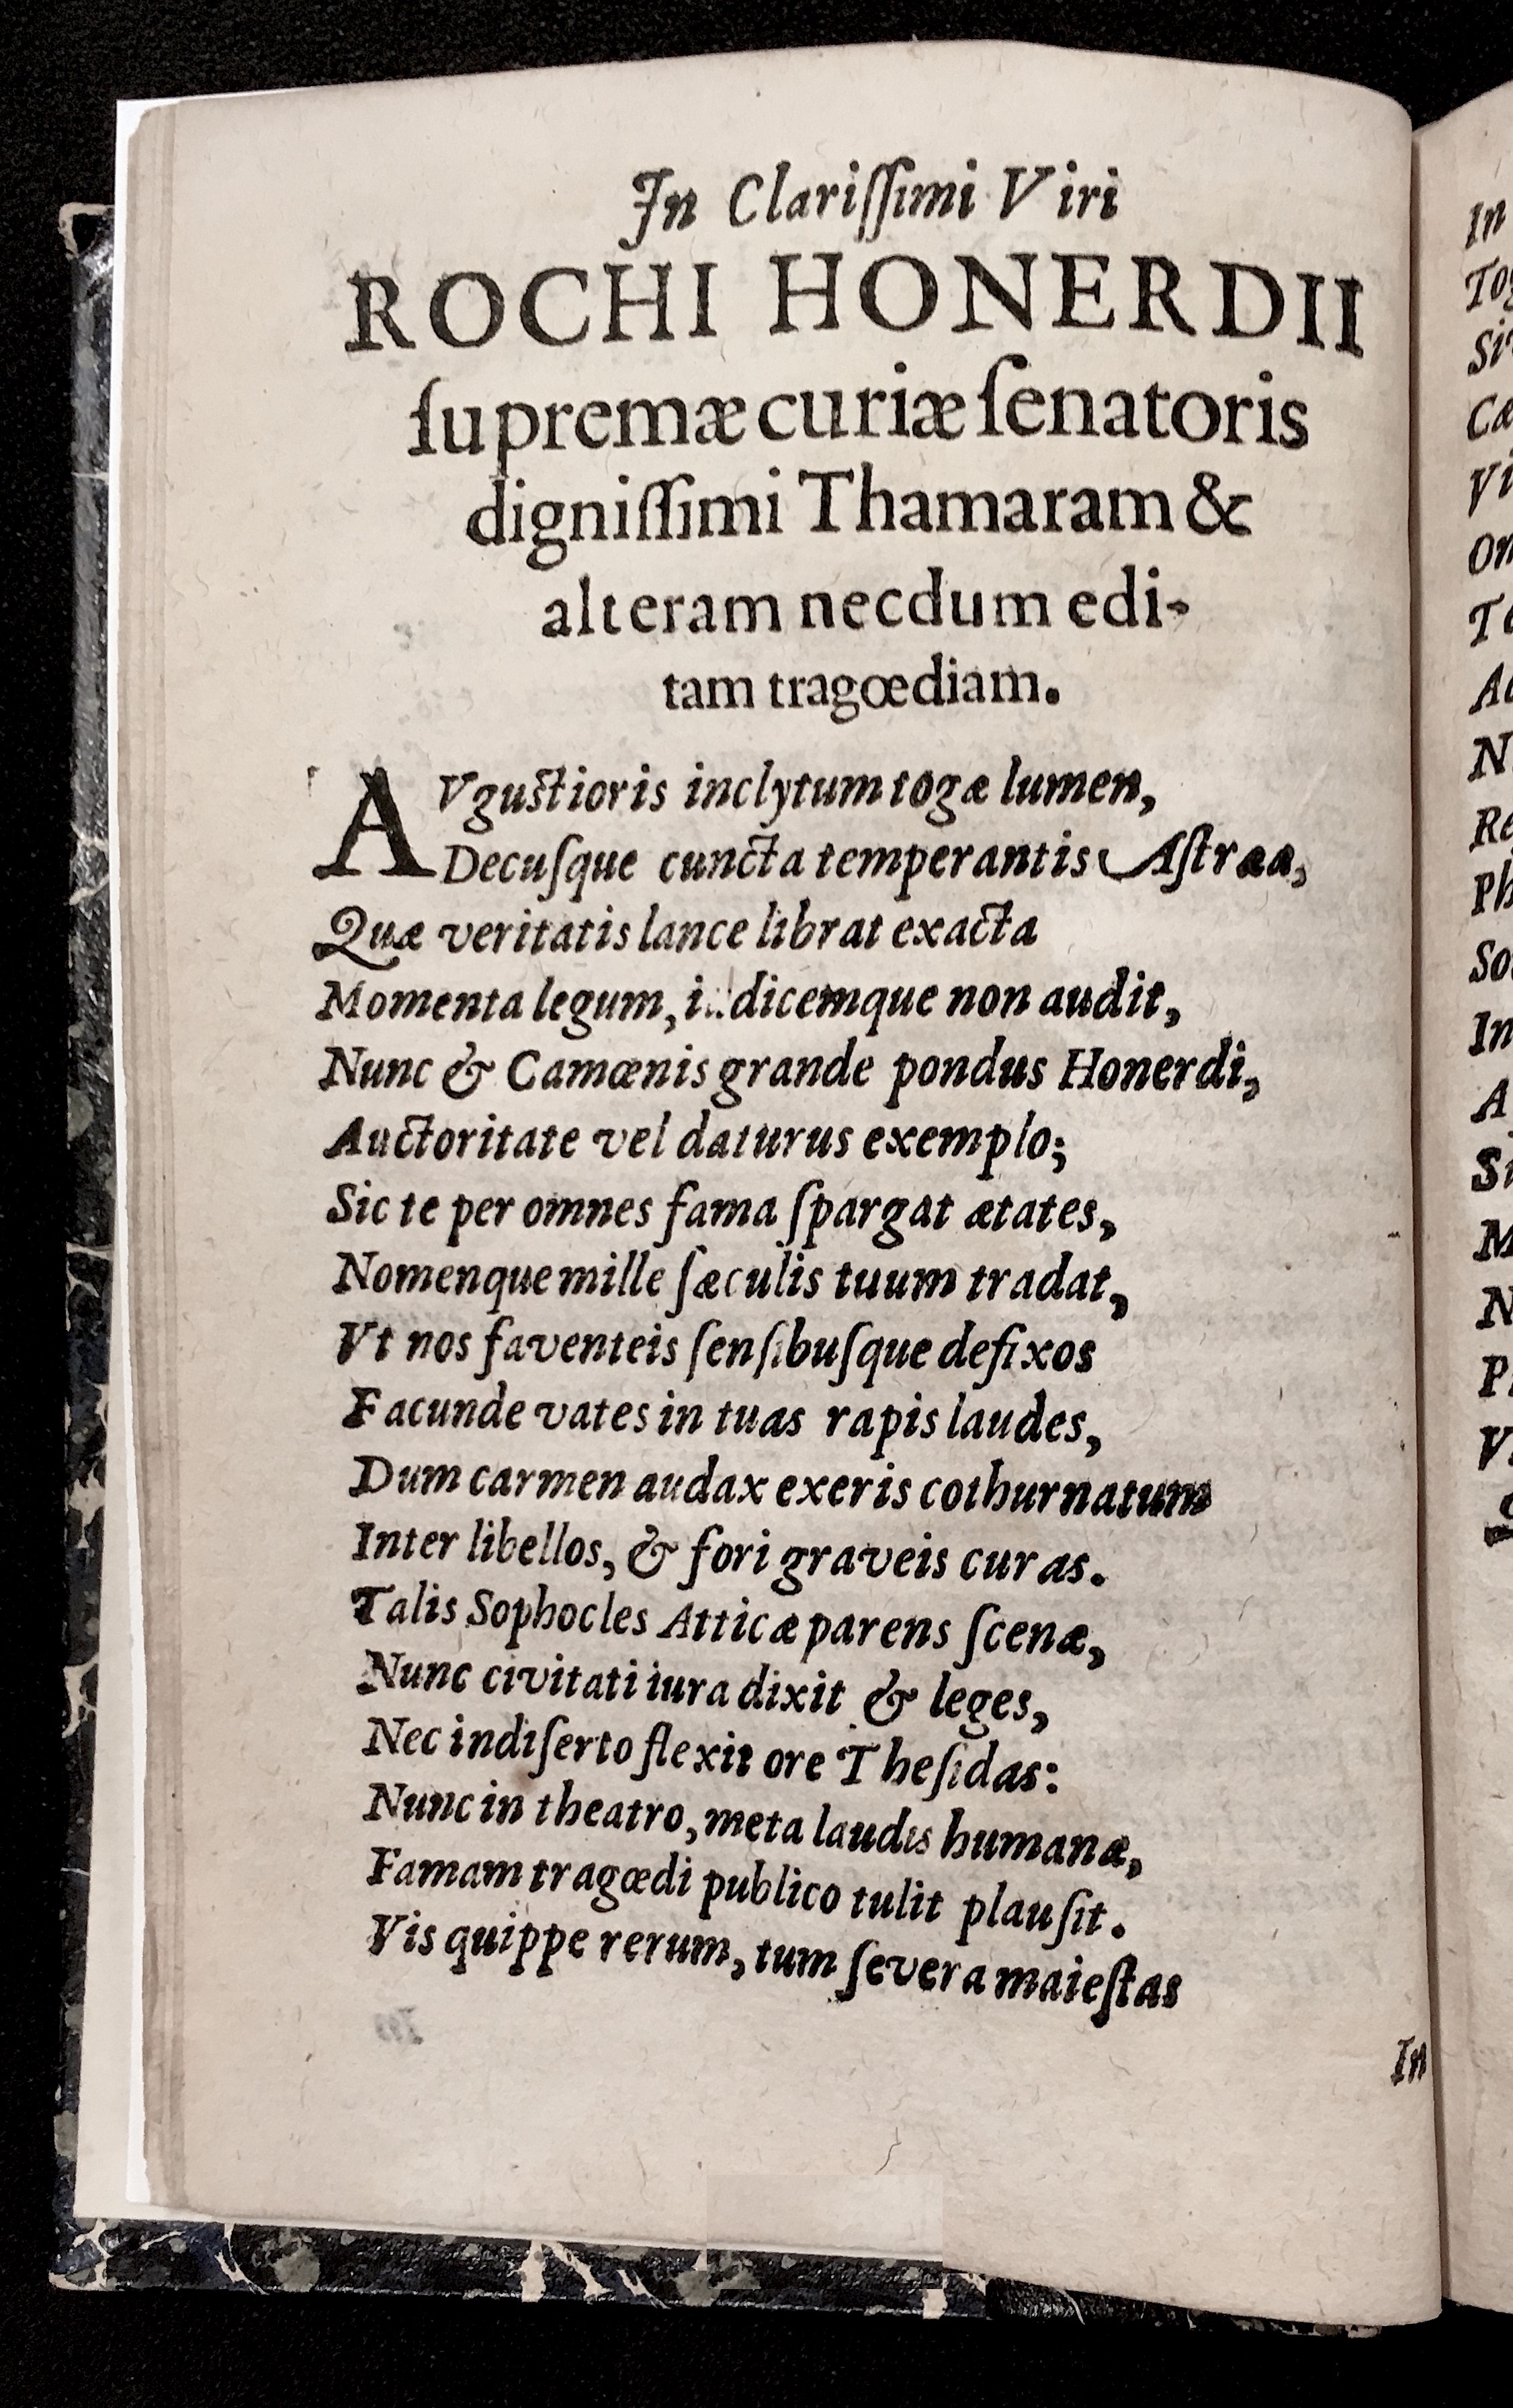 In Clariſſimi Viri
ROCHI HONERDII
ſupremæ curiæ ſenatoris
digniſſimi Thamaram &
alteram necdum edi-
tam tragœdiam.
AVguſtioris inclytum togæ lumen,
Decuſque cuncta temperantis Aſtrææ,
Quæ veritatis lance librat exacta
Momenta legum, non audit,
Nunc & Camœnis grande pondus Honerdi,
Auctoritate vel daturus exemplo;
Sic te per omnes fama ſpargat ætates,
Nomenque mille ſæculis tuum tradat,
Vt nos faventeis ſenſibuſque defixos
Facunde vates in tuas rapis laudes,
Dum carmen audax exeris cothurnatum
Inter libellos, & fori graveis curas.
Talis Sophocles Atticæ parens ſcenæ,
Nunc civitati iura dixit & leges,
Nec indiſerto flexit ore Theſidas:
Nunc in theatro, meta laudis humanæ,
Famam tragœdi publico tulit plauſit.
Vis quippe rerum, tum ſevera maieſtas
In